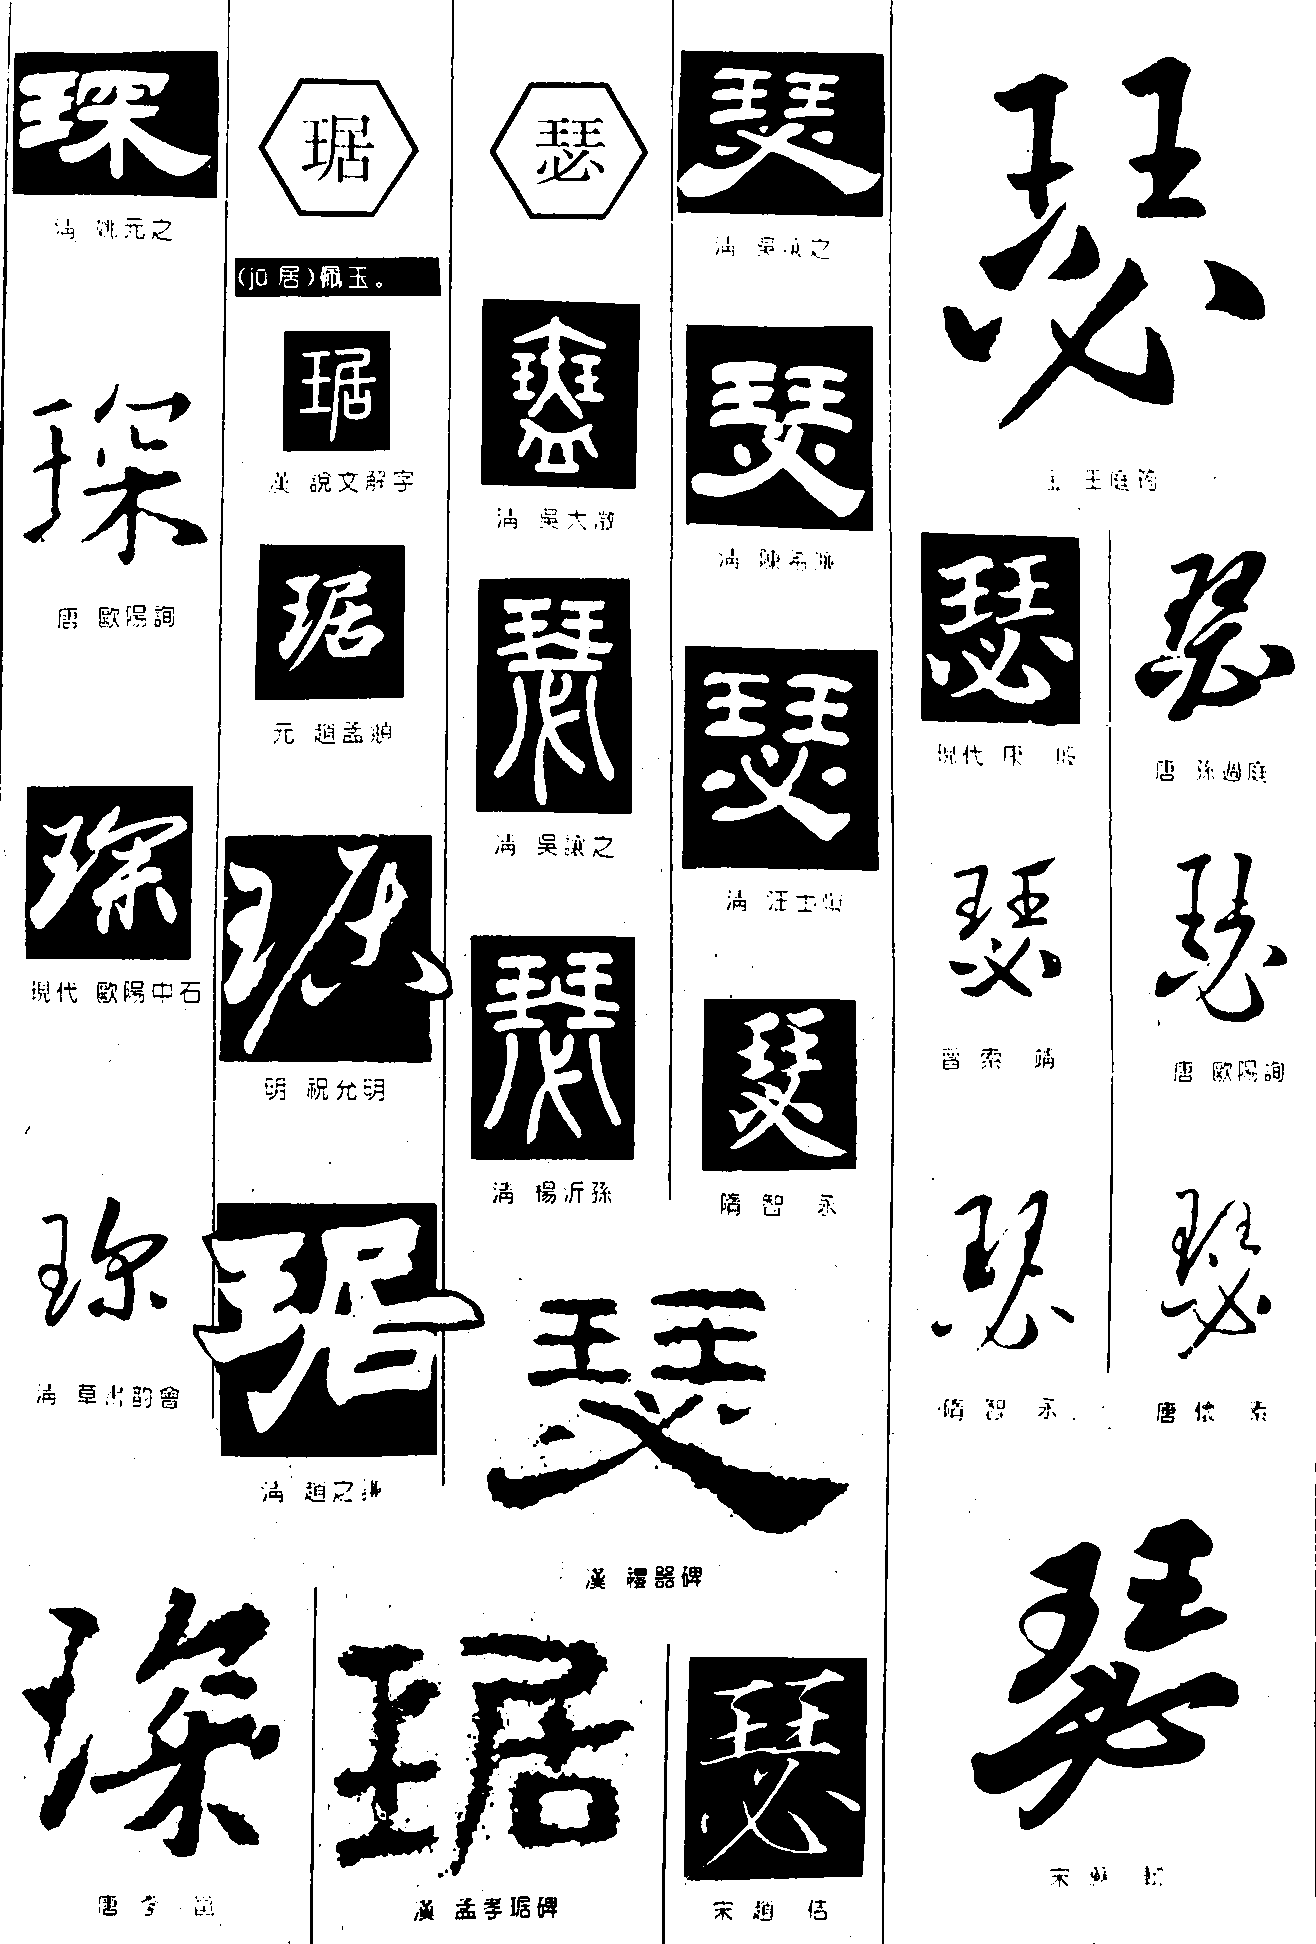 琛
清 姚元之
琛
唐 歐陽詢
琛
現代 歐陽中石
琛
清 草出韵會
琛
唐
琚
(jū 居)佩玉。
琚
漢 說文解字
琚
元 趙孟頫
琚
明 祝允明
琚
清 趙之謙
琚
漢 孟孝琚碑
瑟
瑟
清 吳大澂
瑟
清 吳讓之
瑟
清 楊沂孫
瑟
漢 禮器碑
瑟
清 吳讓之
瑟
清
瑟
清 汪士慎
瑟
隋 智 永
瑟
宋 趙 佶
瑟
王庭筠
瑟
現代 康
瑟
唐 孫過庭
瑟
晉 索 靖
瑟
唐 歐陽詢
瑟
隋 智 永
瑟
唐 懷 素
瑟
宋 蘇 軾